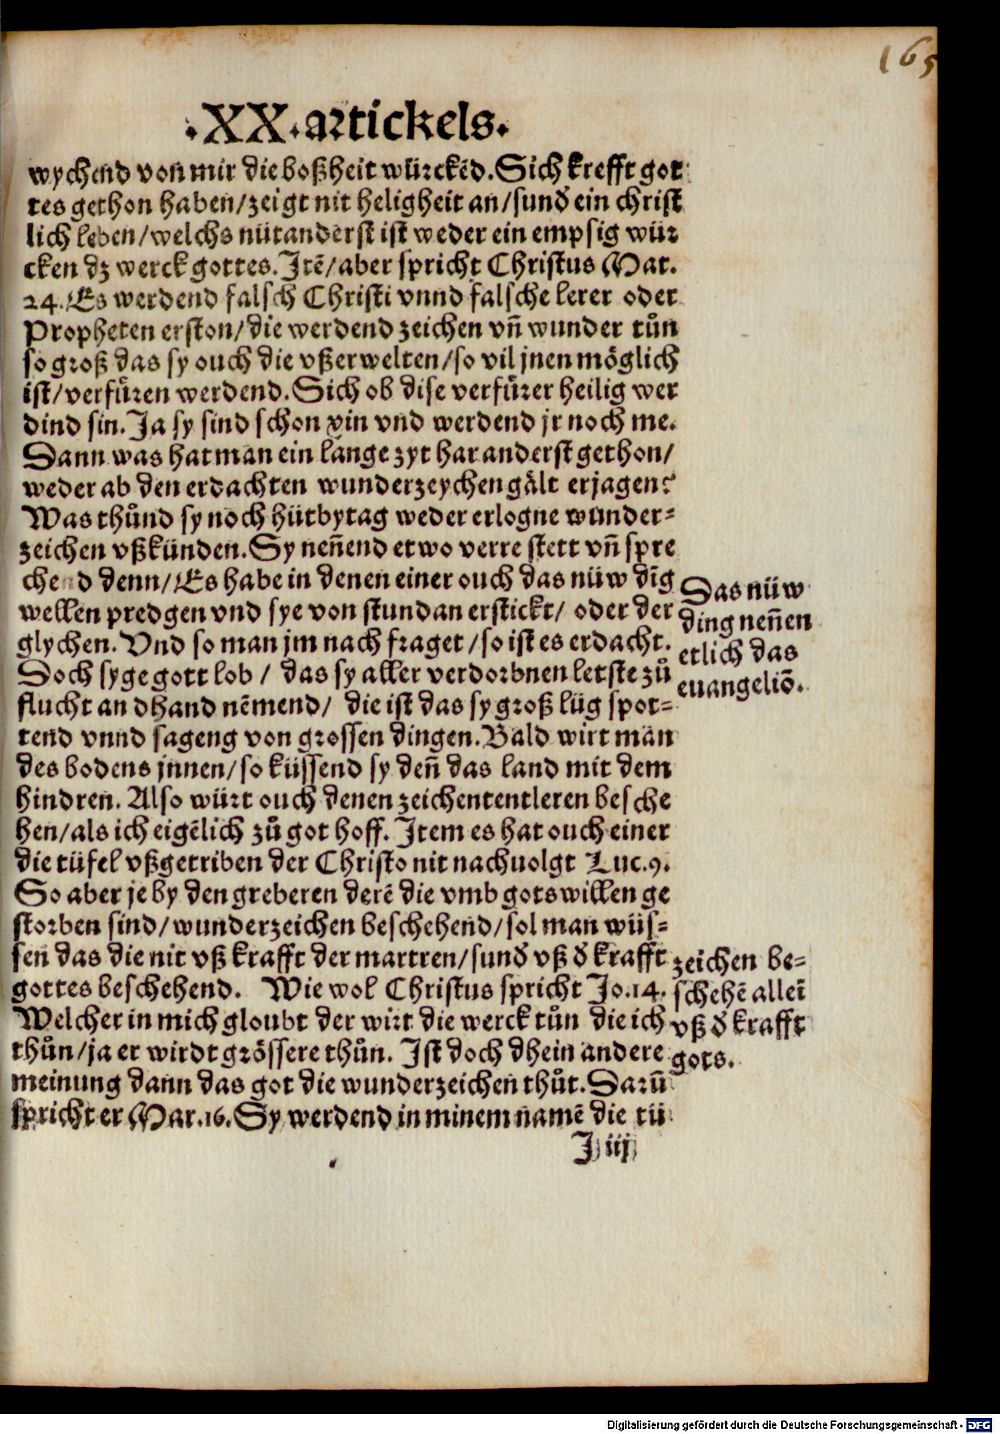 165
.XX.artickels.
wychend von mir die boßheit würckēd. Sich krefft got
tes gethon haben/zeigt nit heligheit an/sund̕ ein christ
lich leben/welchs nüt anderst ist weder ein empsig wür
cken dz werck gottes. Itē/aber spricht Christus Mat.
24. Es werdend falsch Christi vnnd falsche lerer oder
Propheten erston/die werdend zeichen vn̄ wunder tůn
so groß das sy ouch die vßerwelten/so vil jnen möglich
ist/verfůren werdend. Sich ob dise verfůrer heilig wer
dind sin. Ja sy sind schon xin vnd werdend jr noch me.
Dann was hat man ein lange zyt har anderst gethon/
weder ab den erdachten wunderzeychen gält erjagen?
Was thůnd sy noch hütbytag weder erlogne wunder-
zeichen vßkünden. Sy nen̄end etwo verre stett vn̄ spre
chend denn/Es habe in denen einer ouch das nüw dīg
wellen predgen vnd sye von stund an erstickt/ oder der
glychen. Vnd so man jm nach fraget/so ist es erdacht.
Doch sy ge gott lob/ das sy aller verdorbnen letste zů
flucht an dhand nēmend/ die ist das sy groß lüg spot-
tend vnnd sageng von grossen dingen. Bald wirt man
des bodens jnnen/so küssend sy den̄ das land mit dem
hindren. Also würt ouch denen zeichententleren besche
hen/als ich eigēlich zů got hoff. Item es hat ouch einer
die tüfel vßgetriben der Christo nit nachuolgt Luc.9.
So aber je by den greberen derē die vmb gots willen ge
storben sind/wunderzeichen beschehend/sol man wüs-
sen das die nit vß krafft der martren/sund̕ vß d̕ krafft
gottes beschehend. Wie wol Christus spricht Jo.14.
Welcher in mich gloubt der wirt die werck tůn die ich
thůn/ja er wirdt grössere thůn. Ist doch dhein andere
meinung dann das got die wunderzeichen thůt. Darū
spricht er Mar.16. Sy werdend in minem namē die tü
J iij
Das nüw
ding nen̄en
etlich das
euangeliō.
zeichen be-
schehē alleī
vß d̕ krafft
gots.
Digitalisierung gefördert durch die Deutsche Forschungsgemeinschaft - DFG